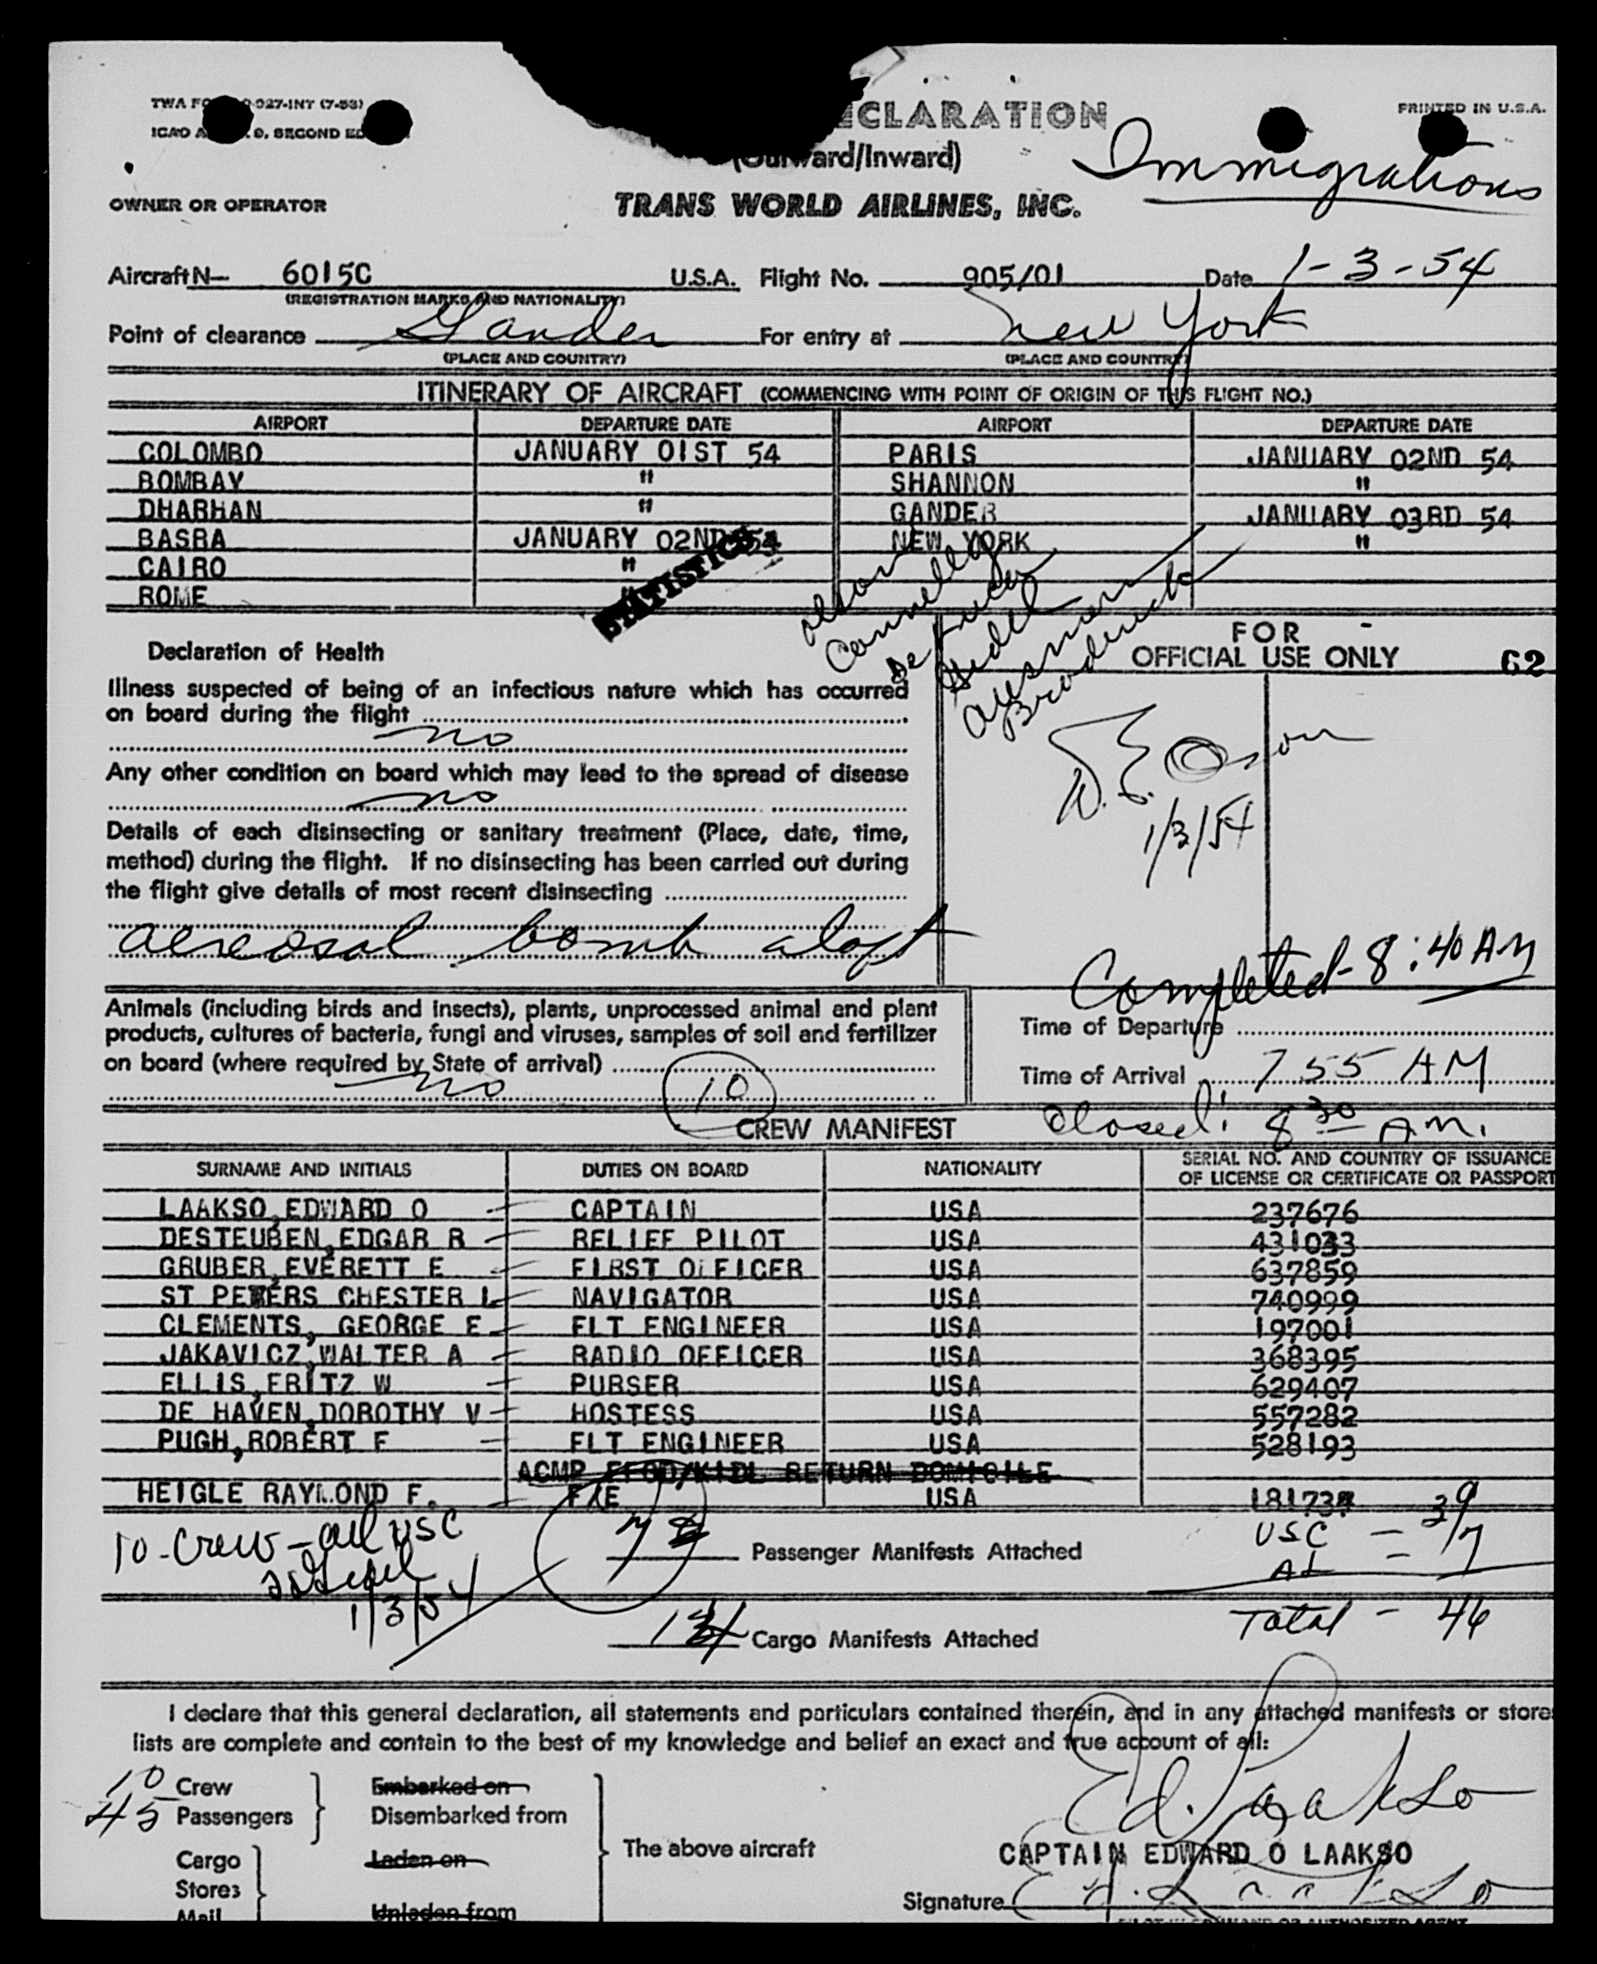 ECLARATION
PRINTED IN U.S.A.
(Outward/Inward)
Immigrations
OWNER OR OPERATOR
TRANS WORLD AIRLINES, INC.
Aircraft N— 6015C U.S.A. Flight No. 905/01 Date 1-3-54
(REGISTRATION MARKS AND NATIONALITY)
Point of clearance Gander For entry at New York
(PLACE AND COUNTRY) (PLACE AND COUNTRY)
ITINERARY OF AIRCRAFT (COMMENCING WITH POINT OF ORIGIN OF THIS FLIGHT NO.)
AIRPORT DEPARTURE DATE AIRPORT DEPARTURE DATE
COLOMBO JANUARY 01ST 54 PARIS JANUARY 02ND 54
BOMBAY " SHANNON "
DHARHAN " GANDER JANUARY 03RD 54
BASRA JANUARY 02ND 54 NEW YORK "
CAIRO "
ROME "
STATISTICS
Connelly
Broderick
FOR
OFFICIAL USE ONLY 62
Declaration of Health
Illness suspected of being of an infectious nature which has occurred
on board during the flight
no
Any other condition on board which may lead to the spread of disease
no
1/3/54
Details of each disinsecting or sanitary treatment (Place, date, time,
method) during the flight. If no disinsecting has been carried out during
the flight give details of most recent disinsecting
aereosal bomb aloft
Completed - 8:40 AM
Animals (including birds and insects), plants, unprocessed animal and plant
products, cultures of bacteria, fungi and viruses, samples of soil and fertilizer
on board (where required by State of arrival)
no 10
Time of Departure
Time of Arrival 755 AM
closed: 8 30 AM.
CREW MANIFEST
SURNAME AND INITIALS DUTIES ON BOARD NATIONALITY SERIAL NO. AND COUNTRY OF ISSUANCE
OF LICENSE OR CERTIFICATE OR PASSPORT
LAAKSO, EDWARD O CAPTAIN USA 237676
DESTEUBEN, EDGAR R RELIEF PILOT USA 431033
GRUBER, EVERETT E FIRST OFFICER USA 637859
ST PETERS CHESTER L NAVIGATOR USA 740999
CLEMENTS, GEORGE E FLT ENGINEER USA 197001
JAKAVICZ, WALTER A RADIO OFFICER USA 368395
ELLIS, FRITZ W PURSER USA 629407
DE HAVEN, DOROTHY V HOSTESS USA 557282
PUGH, ROBERT F FLT ENGINEER USA 528193
ACMP FFOD/KIDL RETURN DOMICILE
HEIGLE RAYMOND F. F/E USA
10 - Crew - all USC
1/3/54
Passenger Manifests Attached
USC - 39
AL - 7
Total - 46
Cargo Manifests Attached
I declare that this general declaration, all statements and particulars contained therein, and in any attached manifests or store
lists are complete and contain to the best of my knowledge and belief an exact and true account of all:
10 Crew Embarked on
45 Passengers Disembarked from
The above aircraft
Cargo Laden on
Stores
Mail Unladen from
Ed. Laakso
CAPTAIN EDWARD O LAAKSO
Signature Ed. Laakso